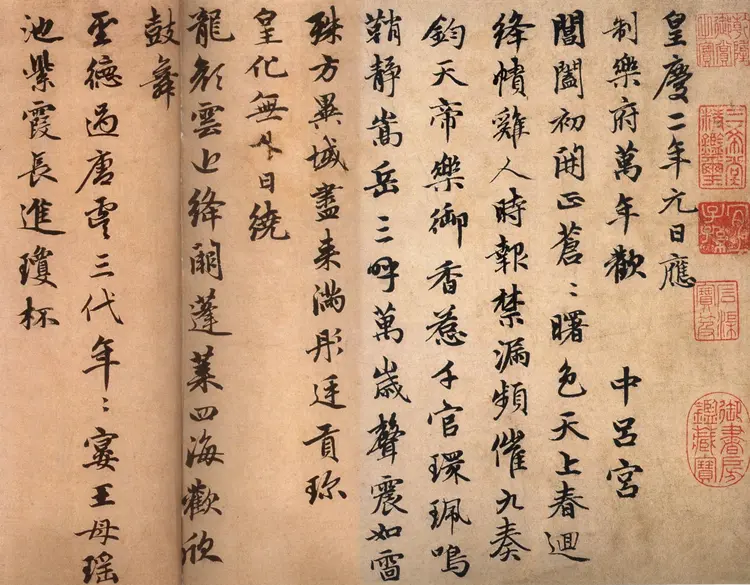 皇慶二年元日應
制樂府萬年歡 中呂宮
閶闔初開正蒼〻曙色天上春迴
絳幘雞人時報禁漏頻催九奏
鈞天帝樂御香惹千官環珮鳴
鞘靜嵩岳三呼萬歲聲震如雷
殊方異域盡來滿彤廷貢珎
皇化無外日繞
龍顏雲近絳闕蓬萊四海歡欣
鼓舞
聖德過唐虞三代年〻宴王母瑤
池紫霞長進瓊杯
三希堂精鑑璽
宜子孫
石渠寶笈
御書房鑑藏寶